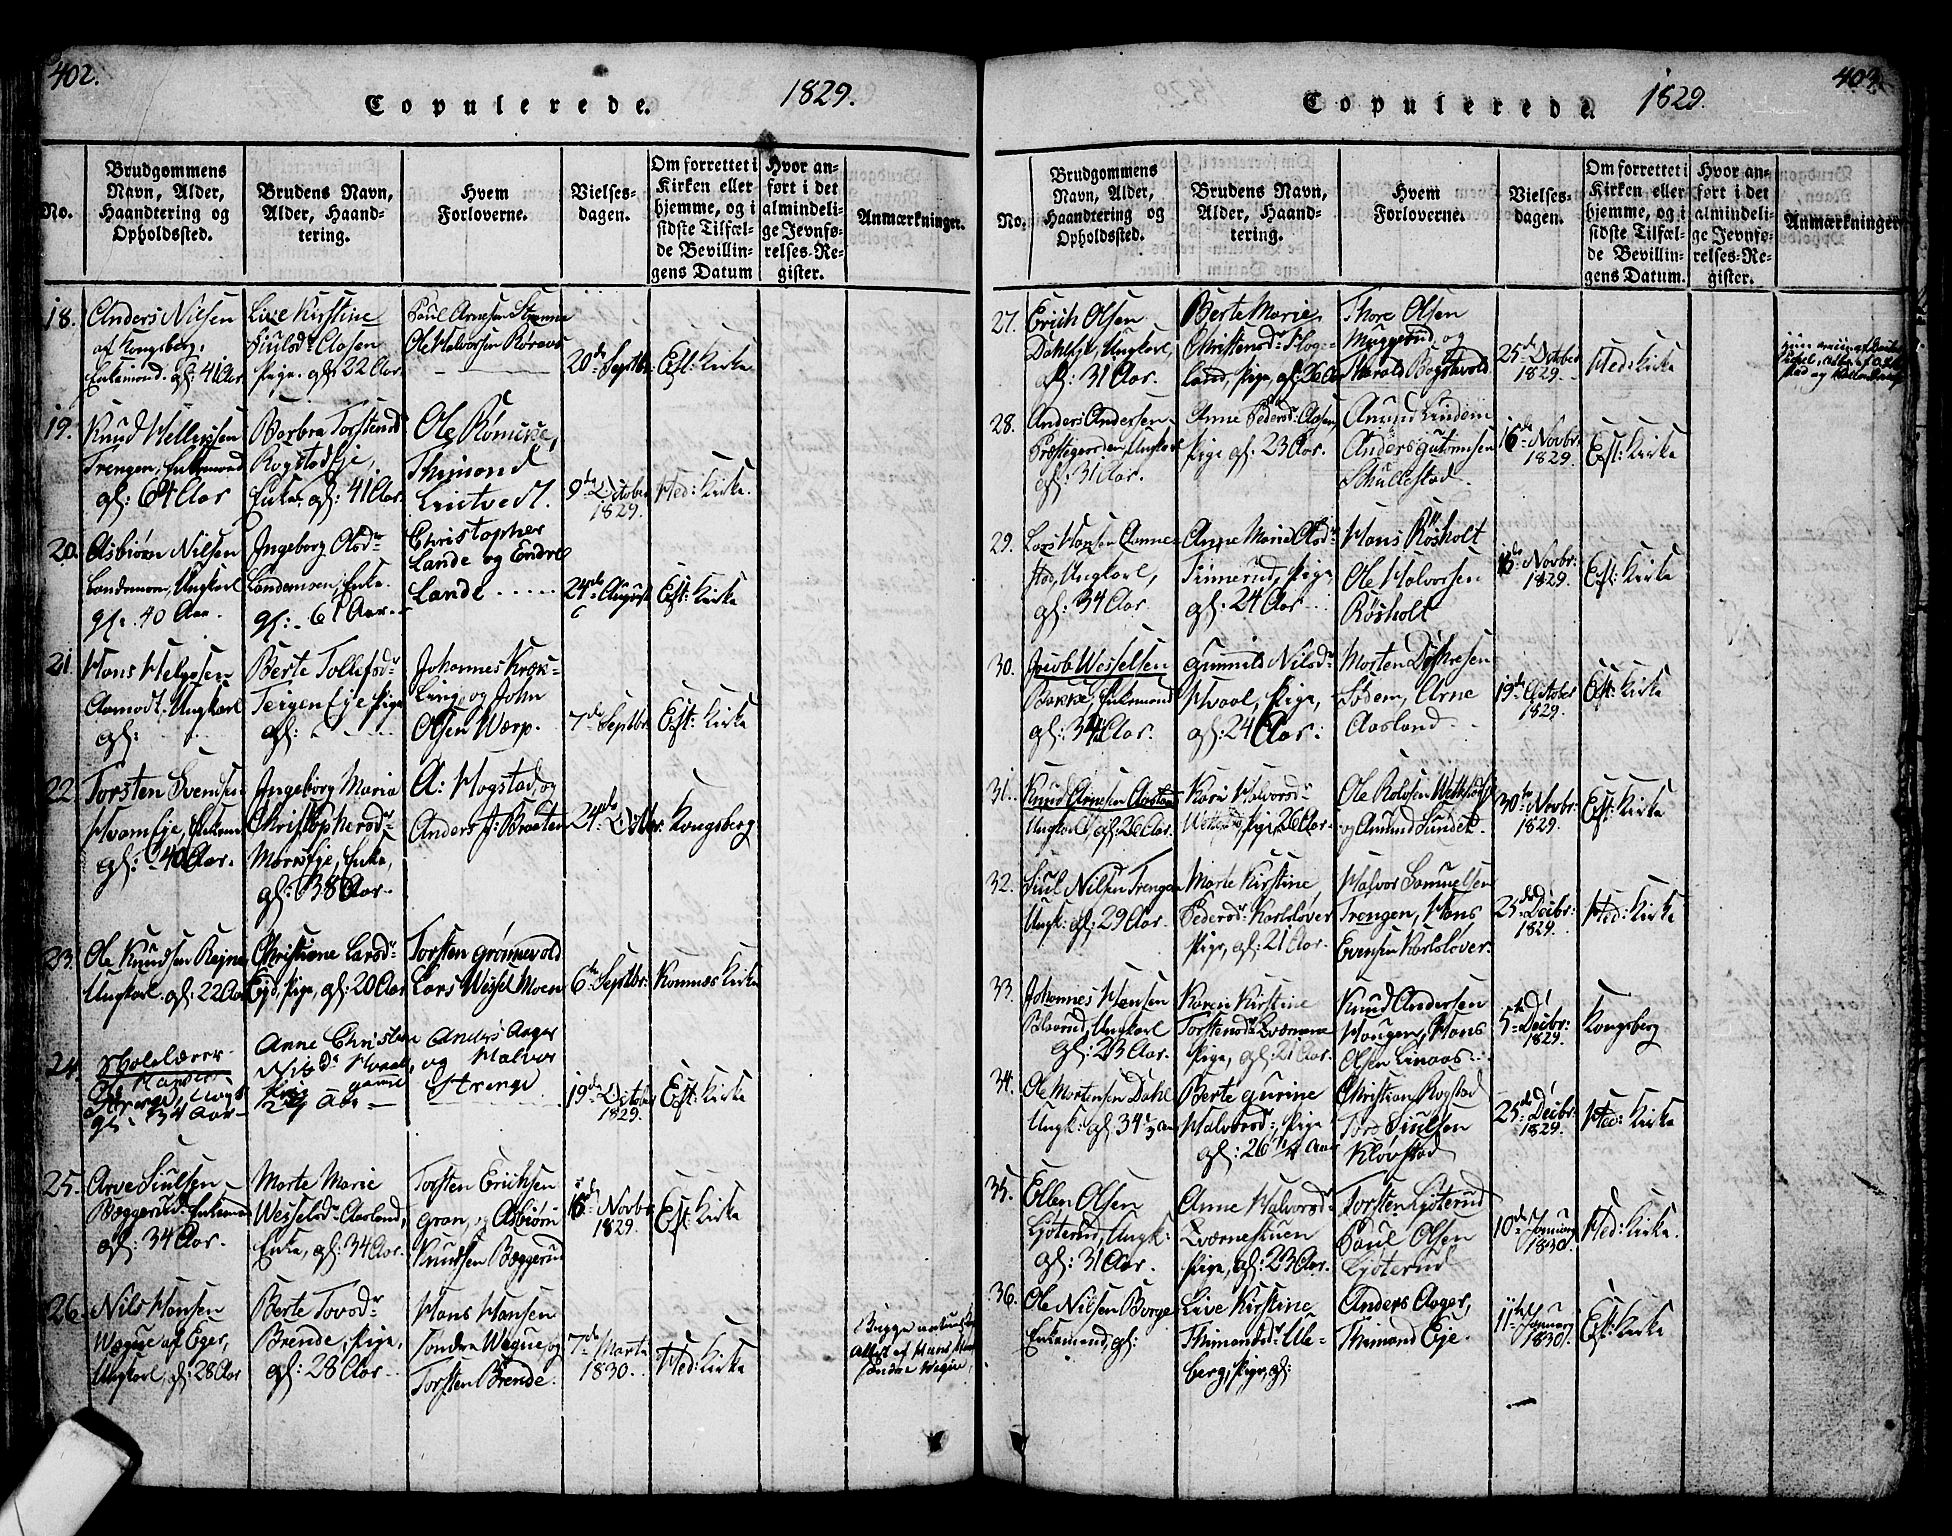 402.
Copulerede.
1829.
No.
Brudgommens
Navn, Alder,
Haandtering og
Opholdssted.
Brudens Navn,
Alder, Haand-
tering.
Hvem
Forloverne.
Vielses-
dagen.
Om forrettet i
Kirken eller
hjemme, og i
sidste Tilfæl-
de Bevillin-
gens Datum
Hvor an-
ført i det
almindeli-
ge Jevnfø-
relses-Re-
gister.
Anmærkninger.
18.
Anders Nilsen
af Kongsberg,
Enkemand. gl: 41 Aar
Live Kirstine
Siulsdr Aasen
Pige. gl: 22 Aar
Poul Arnesen
Ole Halvorsen
20de Septbr:
Eft: Kirke
19.
Knud Hellissen
Trengen, Enkemand
gl: 64 Aar
Berbra Torstensd
Rogstadeje,
Enke, gl: 41 Aar
Ole
Thimand
Lintvedt.
9de October
1829.
Hed: Kirke.
20.
Asbiørn Nilsen
Landemoen, Ungkarl
gl. 40 Aar.
Ingeborg Olsdr
Landemoen, Enke
gl: 61 Aar.
Christopher
Lande og Endre
Lande
24de August
Eft: Kirke
21.
Hans Helgesen
Aamodt. Ungkarl
gl:
Berte Tollefsdr
Teigen Eje Pige
gl:
Johannes Kræk-
ling, og John
Olsen Wærp.
7de Septbr:
Eft: Kirke
22.
Torsten Svendsen
Hvam Eje, Enkem
gl: 40 Aar.
Ingeborg Maria
Christophersdr
Moens Eje, Enke,
gl: 38 Aar.
A: Hogstad, og
Anders J: Braaten
24de Octbr
Kongsberg
23.
Ole Knudsen
Ungkarl. gl: 22 Aar
Christiane Larsdr
Eje, Pige, gl: 20 Aar
Torsten Grønnevold
Lars Wessel Moen
6te Septbr:
Komnæs Kirke
24.
Skolelærer
Ole Hansen
Strenge, Ungk
gl. 34 Aar
Anne Christine
Pige
24 Aar
Anders Aager
og Halvor
Strenge
19de October
1829.
Eft: Kirke
25.
Arve Siulsen
Bæggerud, Enkema
gl: 34 Aar.
Marte Marie
Wesselsdr Aasland,
Enke, gl: 34 Aar.
Torsten Erichsen
Gran, og Asbiørn
Knudsen Bæggerud
16de Novbr
1829.
Eft: Kirke
26.
Nils Hansen
Wægue af Eger,
Ungkarl, gl: 28 Aar
Berte Tovsdr
Brende, Pige,
gl: 28 Aar.
Hans Hansen
Søndre Wegue, og
Torsten Brende.
7de Marts
1830.
Hed: Kirke
Begge
Attest af Hans
Søndre Wegue,
403.
Copulerede.
1829.
No.
Brudgommens
Navn, Alder,
Haandtering og
Opholdssted.
Brudens Navn,
Alder, Haand-
tering.
Hvem
Forloverne.
Vielses-
dagen.
Om forrettet i
Kirken eller
hjemme, og i
sidste Tilfæl-
de Bevillin-
gens Datum.
Hvor an-
ført i det
almindeli-
ge Jevnfø-
relses-Re-
gister.
Anmærkninger
27.
Erich Olsen
Dahleje, Ungkarl,
gl: 31 Aar.
Berte Marie
Christensdr Hog-
land, Pige, gl: 26 Aar
Thore Olsen
Muggerud og
Harald Bogstvold
25de October
1829.
Hed: Kirke
28.
Anders Andersen
Præstegaarden, Ungkarl
gl: 31 Aar.
Anne Pedersdr Aasen,
Pige gl: 23 Aar.
Amund Lindem
Anders Gutormsen
Skullestad.
16de Novbr:
1829.
Eft: Kirke
29.
Lars Hansen
Ungkarl,
gl: 34 Aar.
Anne Maria Olsdr
Timerud, Pige,
gl: 24 Aar
Hans Røsholt
Ole Halvorsen
Røsholt
16de Novbr:
1829.
Eft: Kirke
30.
Jacob Wesselsen
Bakke, Enkemand
gl: 34 Aar.
Gunnild Nilsdr
Hvaal, Pige,
gl: 24 Aar.
Morten
Sødem, Arne
Aasland
19de October
1829.
Eft: Kirke
31.
Knud Arnesen Aasland
Ungkarl, gl: 26 Aar.
Kari Halvorsdr
Pige 26 Aar.
Ole Rolvsen
og Amund Sundet.
30te Novbr:
1829.
Eft: Kirke
32.
Siul Nilsen Trengen
Ungk: gl: 29 Aar.
Marte Kirstine
Pedersdr Karlsløver
Pige, gl: 21 Aar.
Halvor Samuelsen
Trengen, Hans
Evensen Karlsløver.
25de Decbr:
1829.
Hed: Kirke
33.
Johannes Hansen
Blaarud, Ungkarl
gl: 23 Aar.
Karen Kirstine
Torstensdr Qværnene
Pige, gl: 21 Aar.
Knud Andersen
Haugen, Hans
Olsen Linaas
5te Decbr:
1829.
Kongsberg
34.
Ole Mortensen Dahl
Ungk: gl 34
Berte Gurine
Halvorsdr, Pige
gl: 26 Aar
Christian Rogstad
Tors Siulsen
Kløvstad
25de Decbr:
1829.
Hed: Kirke
35.
Ellen Olsen
Gjøterud, Ungk:
gl: 31 Aar.
Anne Halvorsdr
Qværnestuen
Pige, gl: 23 Aar.
Torsten Gjøterud
Paul Olsen
Gjøterud
10de January
1830.
Hed: Kirke.
36.
Ole Nilsen Borge
Enkemand, gl:
Live Kirstine
Thimandsdr Ule-
berg, Pige, gl:
Anders Aager,
Thimand Eje.
11te January
1830.
Eft: Kirke